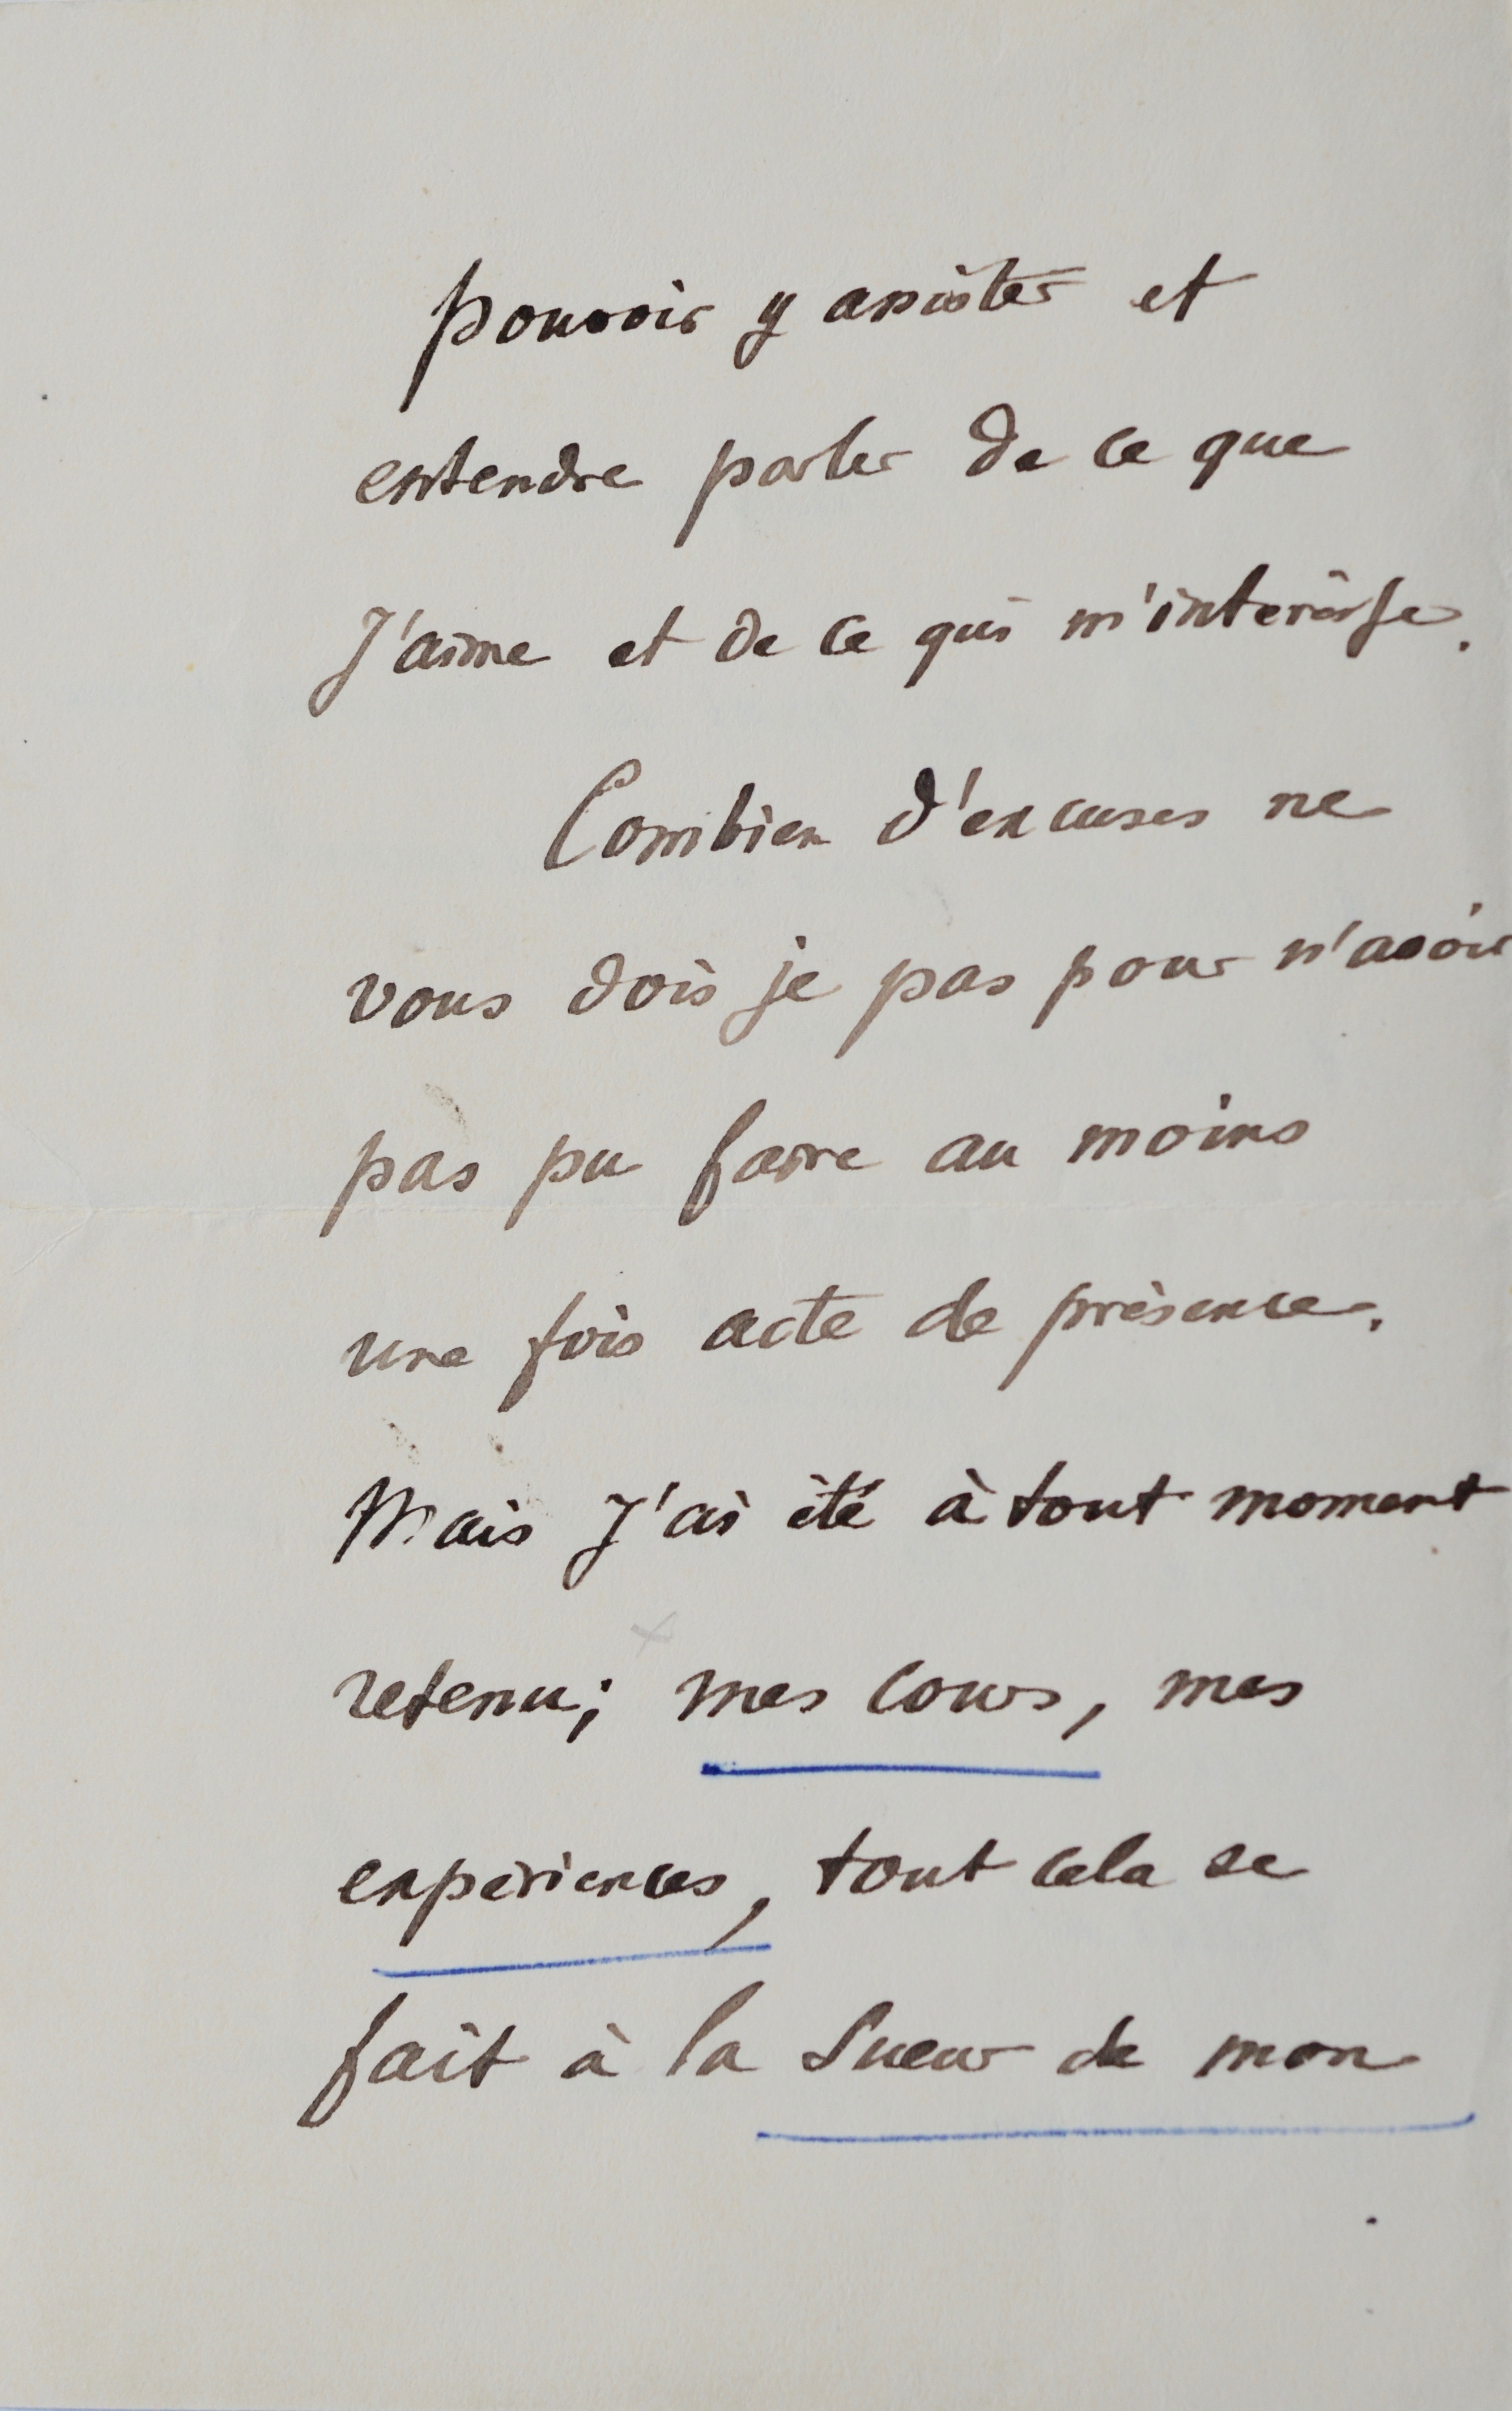 pouvoir y assister et
entendre parler de ce que
J'aime et de ce qui m'interêsse.
Combien d'excuses ne
vous dois je pas pour n'avoir
pas pu faire au moins
une fois acte de présence.
Mais J'ai été à tout moment
retenu; mes cours, mes
expériences, tout cela se
fait à la Sueur de mon